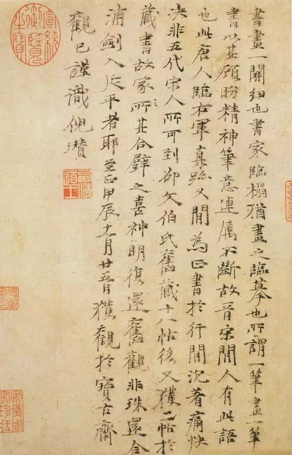 書畫一關紐也書家臨榻猶畫之臨摹也所謂一筆畫一筆
書以其顧盻精神筆意連属不斷故晉宋間人有此語
也此唐人臨右軍真跡又間為正書於行間沉著痛快
决非五代宋人所可到郤文伯氏舊藏十一帖後又獲一帖於
藏書故家所其合璧之喜神明復還舊觀非珠還合
浦劍入延平者耶至正甲辰十一月廿五日獲觀於寶古齋
觀已謹識倪瓚